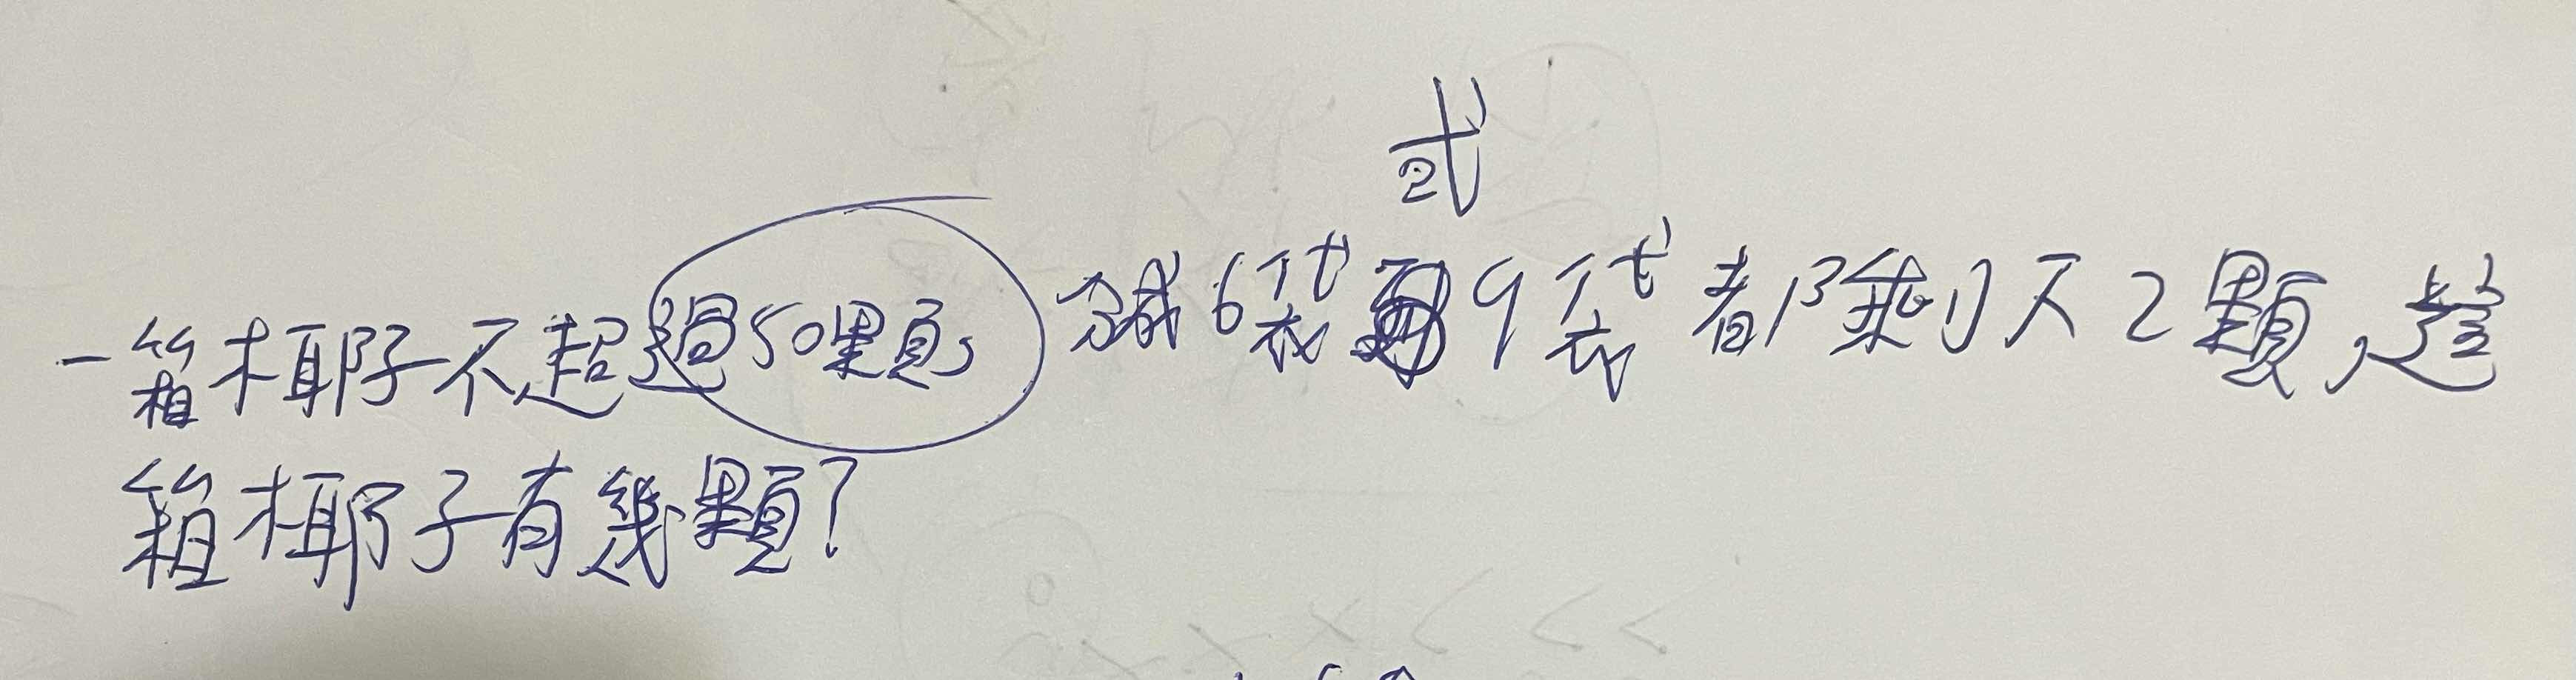 或
一箱椰子不超過50顆, 分成6袋 9袋都剩下2顆,這
箱椰子有幾顆?